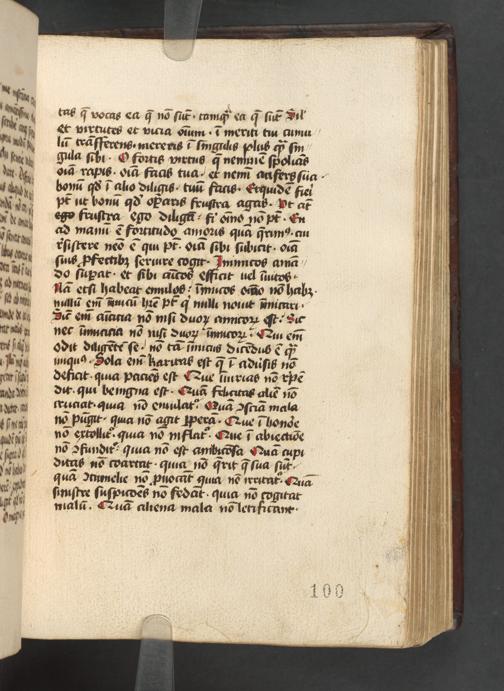 tas q̄ vocas ea q̄ nō sūt · tamq̄ ea q̄ sūt
et virtutes et vicia oīum · ī meriti tui cumu
lū trāsferens · mereris ī singulis solus qd̄ sin
gula sibi · O fortis virtus q̄ neminē spolians
oīa rapis · oīa facis tua · et nemī aufers sua ·
bonū qd̄ ī alio diligis · tuū facis · Etquidē fieri
pt̄ ut bonū qd̄ opaīs frustra agas · Ut aūt
ego frustra ego diligā · fi om̄o nō pt̄ · En
ad manū ē fortitudo amoris quā q̄rim⁹ · cui
resistere nēo ē qui pt̄ · oīa sibi subicit · oīa
suis pfectib; servire cogit · Inimicos amā
do supat · et sibi cūctos efficit vel iuitos ·
Nā etsi habeat emulos · inimicos om̄o nō hab;
nullū em̄ inimicū hr̄e pt̄ q̄ nulli novit inimicari ·
Sic em̄ amicitia nō nisi duor̄ amicor̄ est · Sic
nec inimicitia nō nisi duor̄ inimicor̄ · Qui em̄
odit diligētē se · nō tā inimicus dicēdus ē q̄
iniquus · Sola em̄ karitas est q̄ ī adūsis nō
deficit · quia paciēs est Que iniurias nō rēpē
dit · qui benigna est · Quā felicitas aliē nō
cruciat · quia nō emulatr̄ Quā ↄsciā mala
nō pūgit · quia nō agit ppērā · Que ī honore
nō extollitr̄ · quia nō īflatr̄ · Que ī abiectiōe
nō ↄfunditr̄ · quia nō est ambiciosa Quā cupi
ditas nō coartat · quia nō q̄rit q̄ sua sūt ·
quā ↄtumelie nō pvocāt quia nō irritatr̄ · Quā
sinistre suspiciōēs nō fedāt · quia nō cogitat
malū · Quā aliena mala nō letificant ·
100